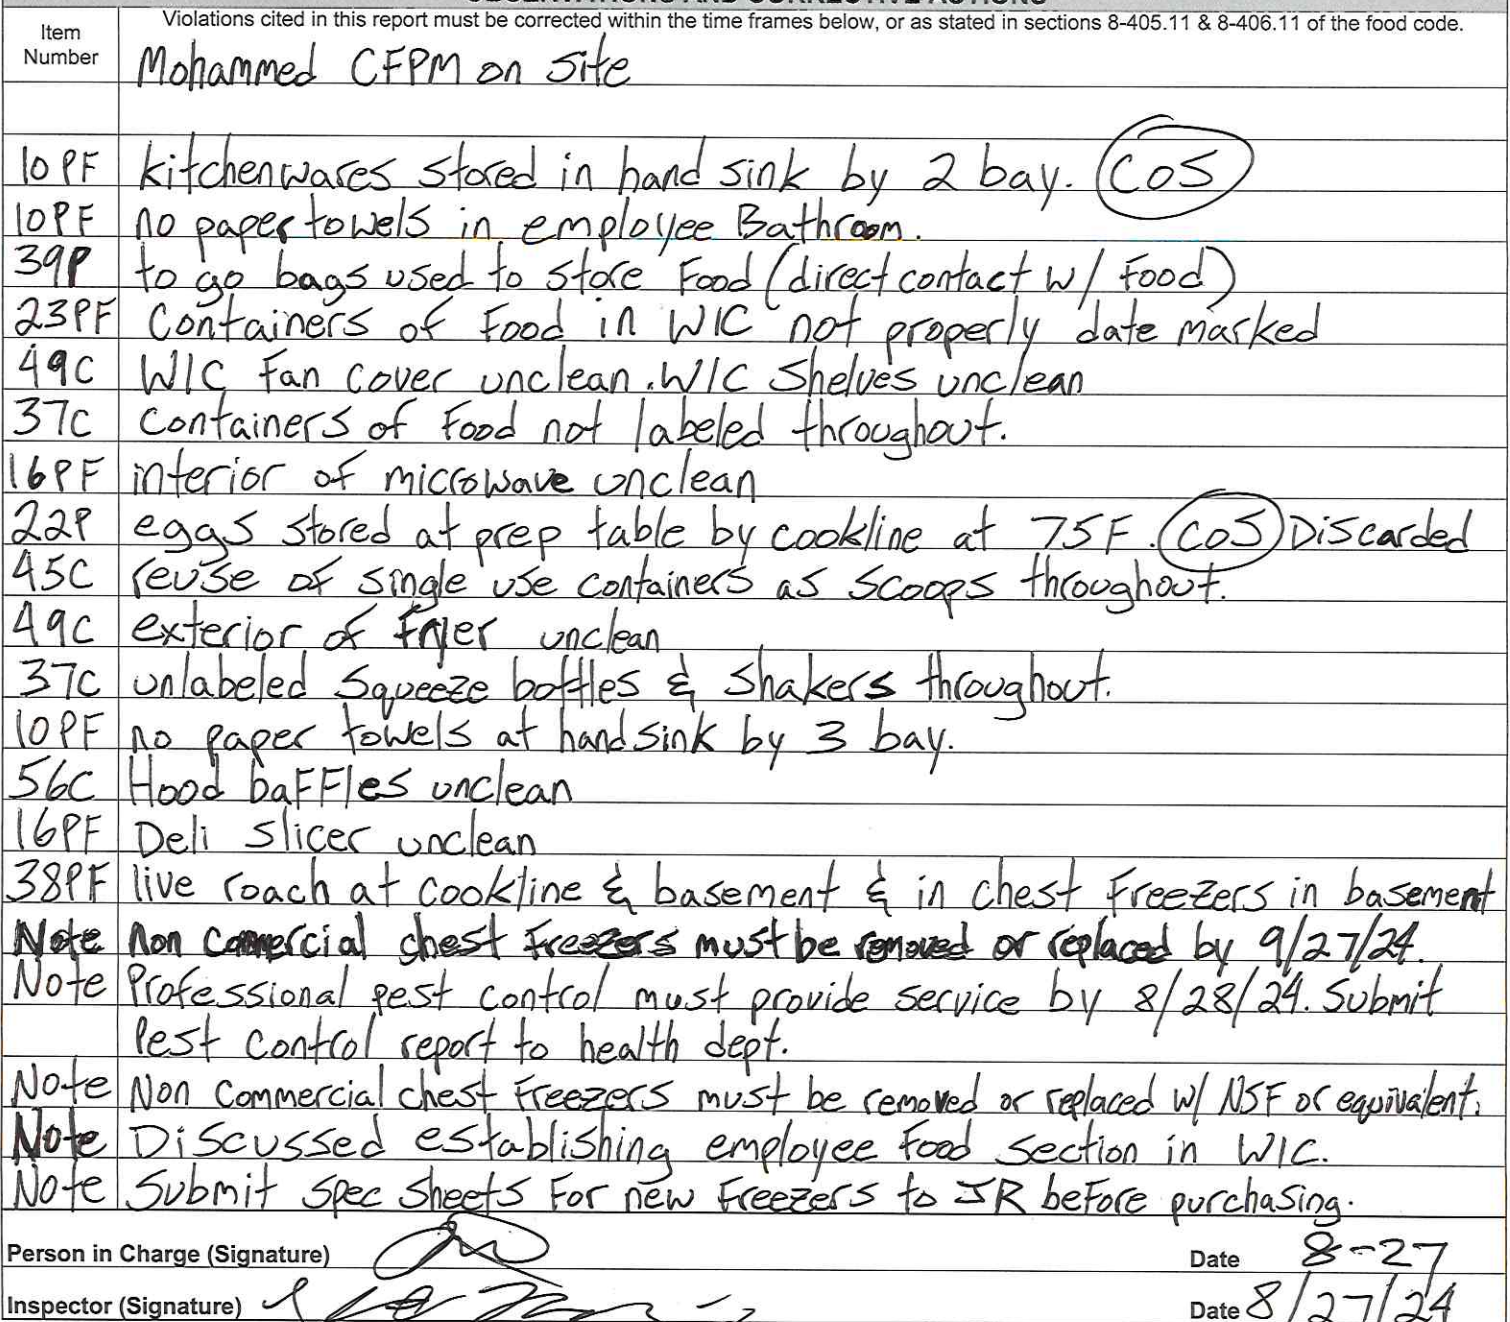 Violations cited in this report must be corrected within the time frames below, or as stated in sections 8-405.11 & 8-406.11 of the food code.
Item Number
Mohammed CFPM on site
10PF kitchenwares stored in hand sink by 2 bay. COS
10PF no paper towels in employee Bathroom.
39P to go bags used to store Food (direct contact w/ Food)
23PF Containers of Food in WIC not properly date marked
49C WIC Fan cover unclean. WIC Shelves unclean
37C Containers of Food not labeled throughout.
16PF interior of microwave unclean
22P eggs stored at prep table by cookline at 75F. COS Discarded
45C reuse of single use containers as scoops throughout.
49C exterior of fryer unclean
37C unlabeled Squeeze bottles & Shakers throughout.
10PF no paper towels at handsink by 3 bay.
56C Hood baFFles unclean
16PF Deli slicer unclean
38PF live roach at cookline & basement & in chest Freezers in basement
Note Non Commercial chest Freezers must be removed or replaced by 9/27/24.
Note Professional pest control must provide service by 8/28/24. Submit
Pest Control report to health dept.
Note Non Commercial chest Freezers must be removed or replaced w/ NSF or equivalent.
Note Discussed establishing employee Food section in WIC.
Note Submit spec sheets For new Freezers to JR before purchasing.
Person in Charge (Signature) Date 8-27
Inspector (Signature) Date 8/27/24